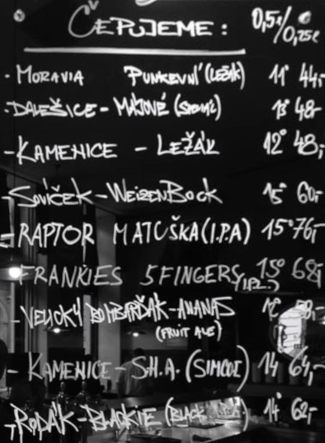 ČEPUJEME: 0,5l/0,25l
- MORAVIA PUNKEVNÍ (LEŽÁK) 11° 44,-
- DALEŠICE - MÁJOVÉ 13° 48-
- KAMENICE - LEŽÁK 12° 48,-
- SOVÍČEK - WEIZENBOCK 15° 60,-
- RAPTOR MATUŠKA (I.P.A) 15° 76,-
- FRANKIES 5FINGERS 15° 68,-
- VELICKÝ BOMBARĎÁK - ANANAS
(FRUIT ALE)
- KAMENICE - S.H.A. (SIMCOE) 14 64,-
- RODÁK - BLACKIE (BLACK 14° 62,-